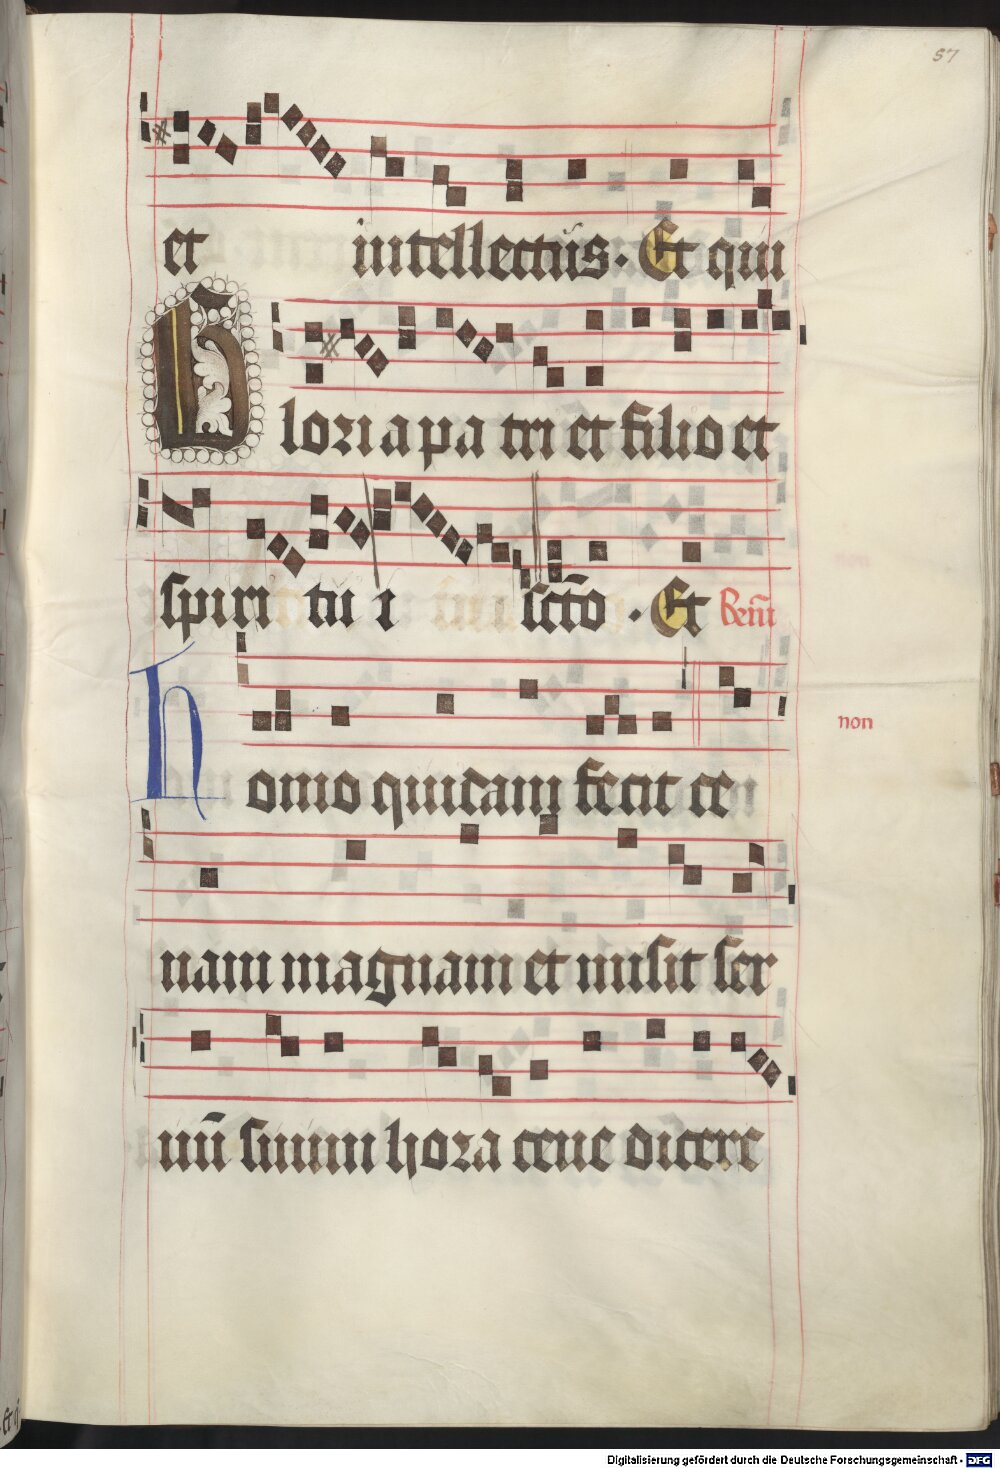 57
et intellectus. Et qui
Gloria pa tri et filio et
spiri tu i scto. Et Breviu
non
Homo quidam fecit ce
nam magnam et misit ser
uū suum hora cene dicere
Et q
Digitalisierung gefördert durch die Deutsche Forschungsgemeinschaft - DFG